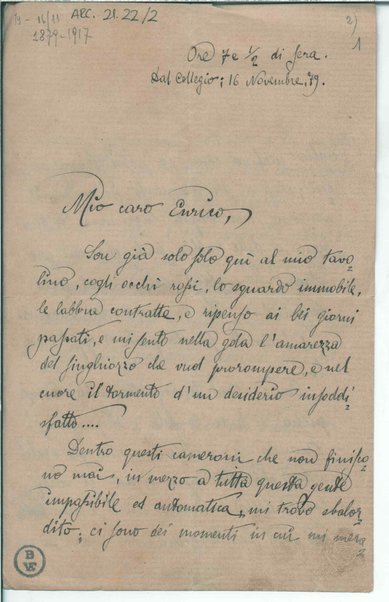 19 - 16/11 ARC. 21. 22/2
1879-1917
2)
1
Ore 7 e 1/2 di sera.
Dal Collegio; 16 Novembre, 79.
Mio caro Enrico,
Son già solo solo quì al mio tavo-
lino, cogli occhi rossi, lo sguardo immobile,
le labbra contratte, e ripenso ai bei giorni
passati, e mi sento nella gola l'amarezza
del singhiozzo che vuol prorompere, e nel
cuore il tormento d'un desiderio insoddi-
sfatto....
Dentro questi cameroni che non finisco-
no mai, in mezzo a tutta questa gente
impassibile ed automatica, mi trovo sbalor-
dito; ci sono dei momenti in cui mi mera-